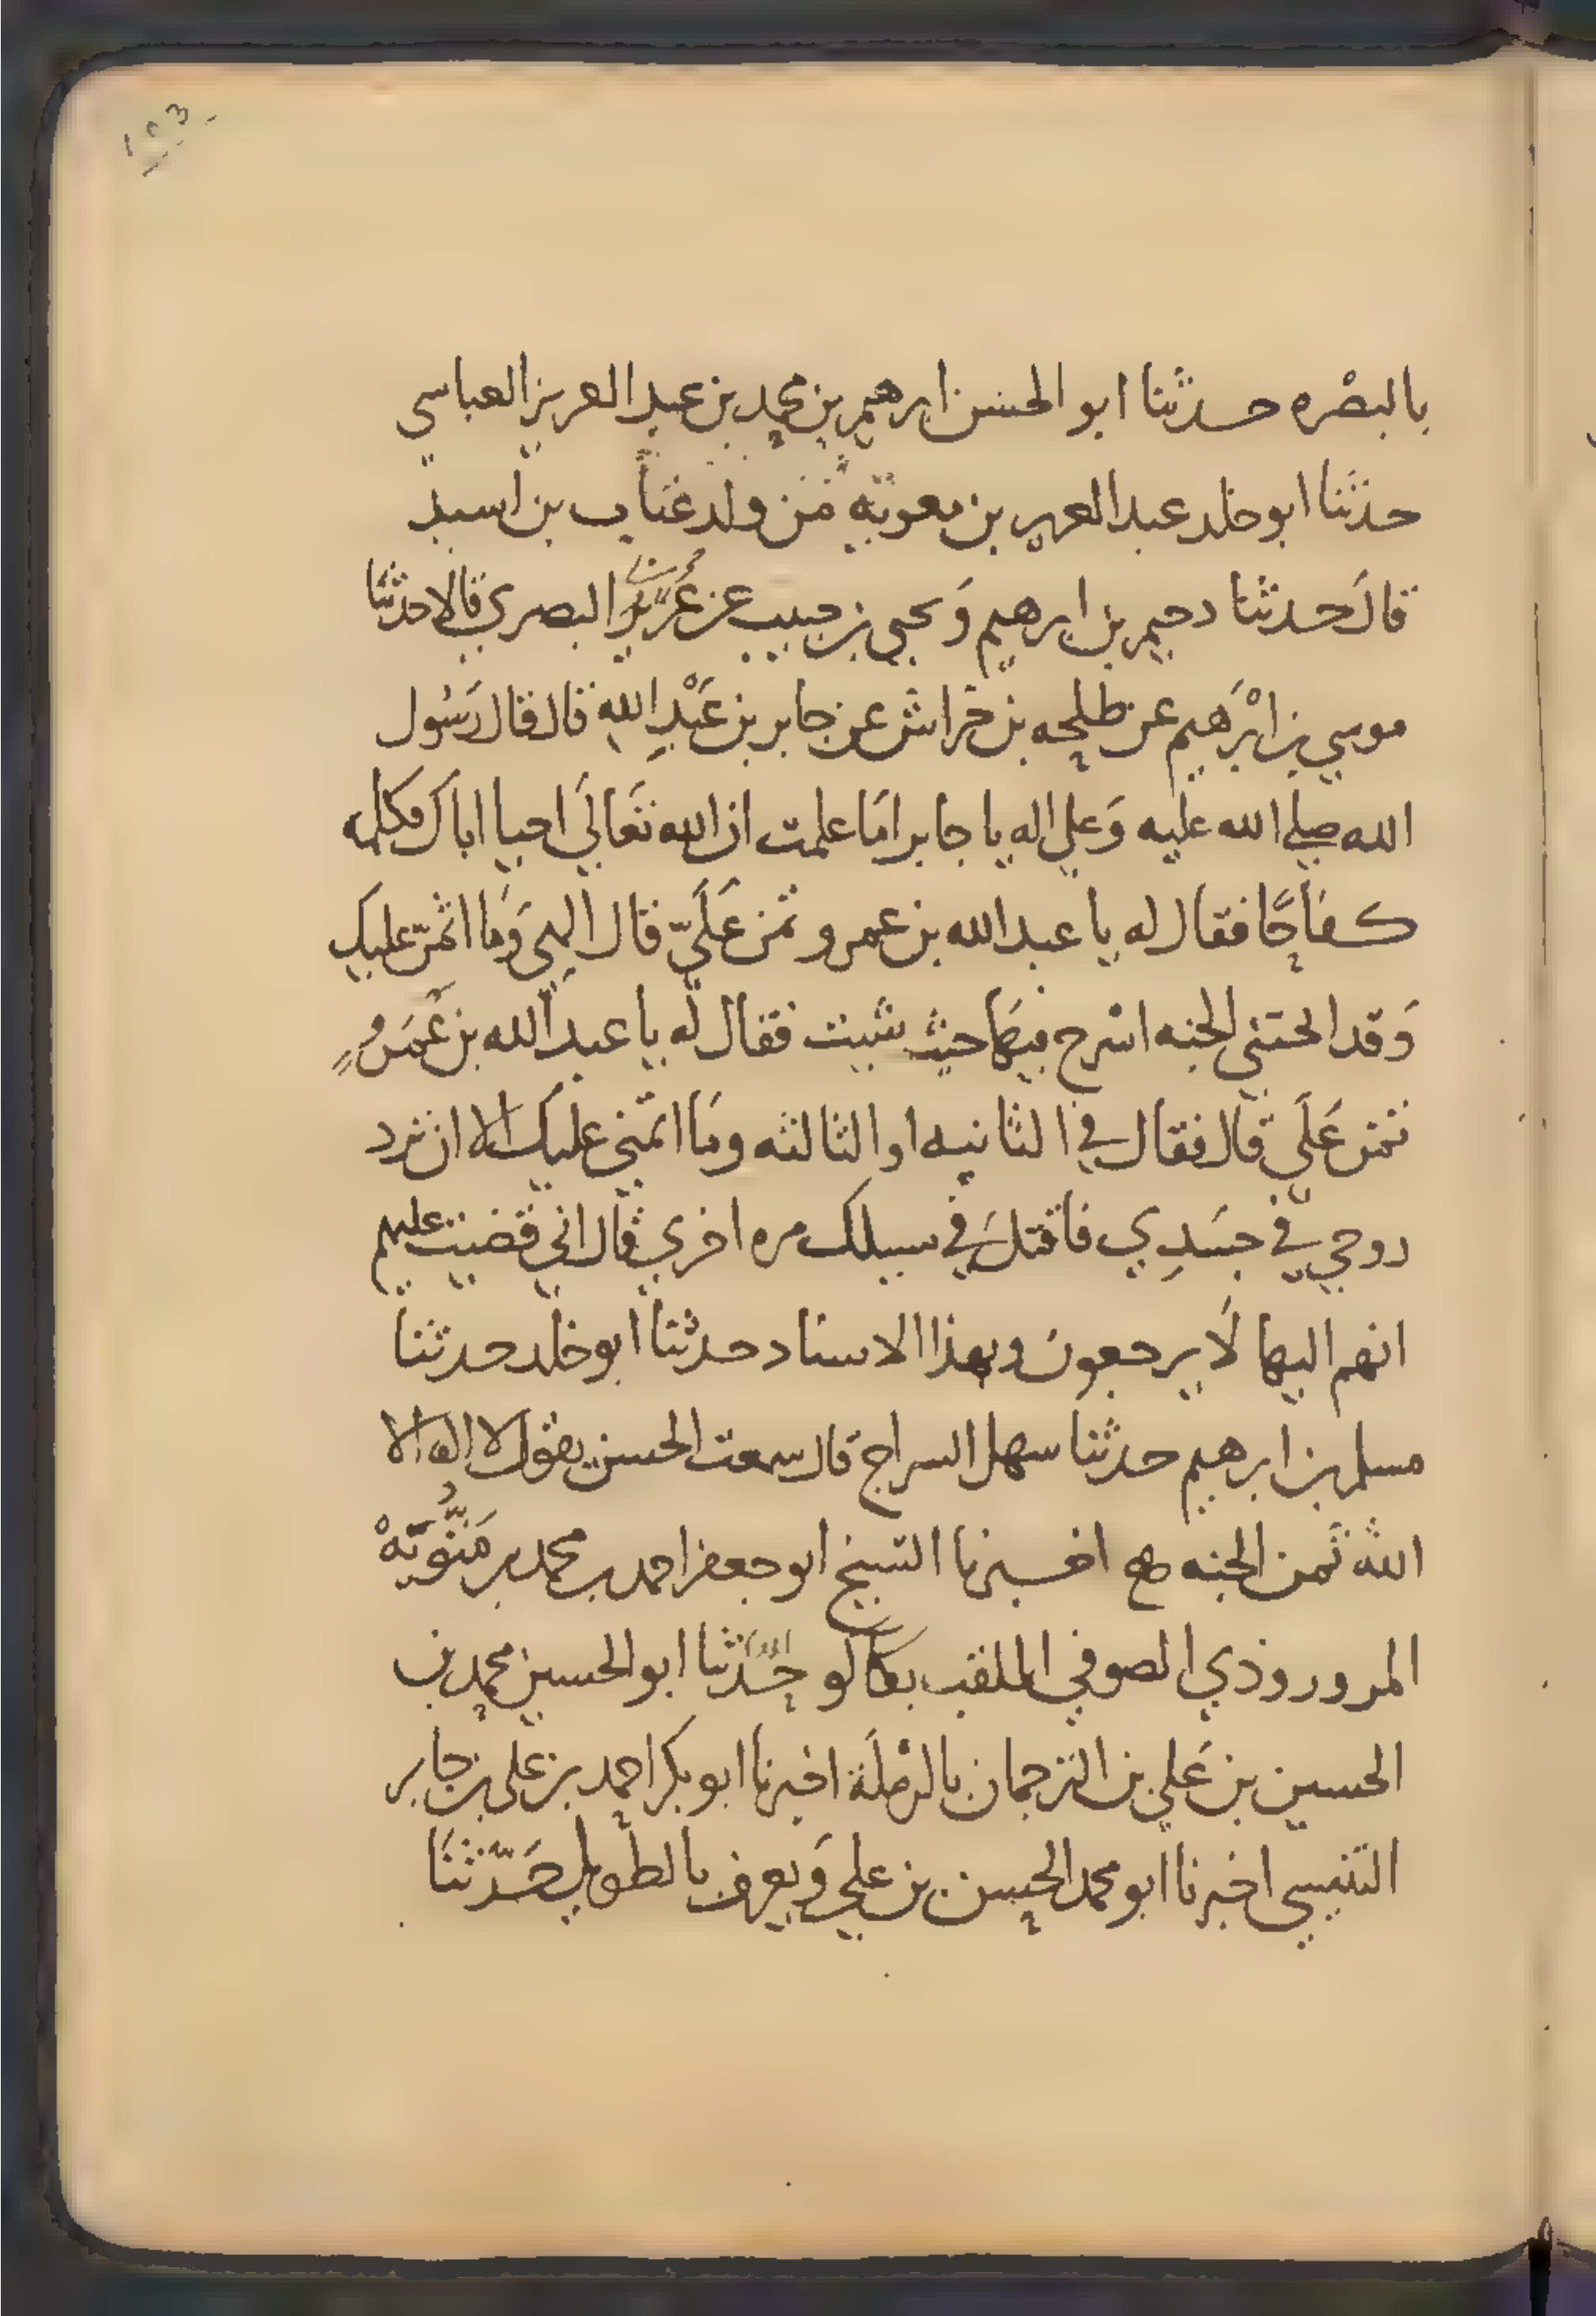 بالبصْره حدثنا ابو الحسن ابرهيم بن محمد بن عبد العزيز العباسي
حدثنا ابو خلد عبد العزيز بن معويه من ولد عتاب بن اسيد
قالَ حدثنا دحيم بن ابرهيم وَ يحيي بن حبيب بن عربي البصري قالا حدثنا
موسي بن ابْرَهيم عن طلحه بن خراش عن جابر بن عَبْدِ الله قال قال رَسُول
الله صلي الله عليه وَعلي اله يا جابر امَا علمت ان الله تعَاليَ احيا اباك فكلمه
كفاحًا فقال له يا عبد الله بن عمرو تمن عَلَيّ قال الهي وَما اتمنّ عليك
وَقد ابحتني الجنه اسْرح فيهَا حيث شيت فقال له يا عبد الله بن عَمَرٍو
تمن عَلَي قال فقال في الثانيه او الثالثه ومَا اتمني عليك الا ان ترد
روحي في جسَدِي فاقتلَ في سبيلك مره اخري قال اني قضيت عليهم
انهم اليها لَا يرجعون وبهذا الاسناد حدثنا ابو خلد حدثنا
مسلم بن ابرهيم حدثنا سهل السراج قال سمعت الحسن يقول لا اله الا
الله ثَمن الجنه اخبرنا الشيخ ابو جعفر احمد بن محمد بن مَتُّويَهْ
المروروذي الصوفي الملقب بكاكو حَدثنا ابو الحسين محمد بن
الحسين بن عَلي بن الترجمان بالرمْلَة اخبرنا ابو بكر احمد بن علي بن جابر
التنيسي اخبرنا ابو محمد الحسن بن علي وَيعرف بالطويل حَدّثنَا